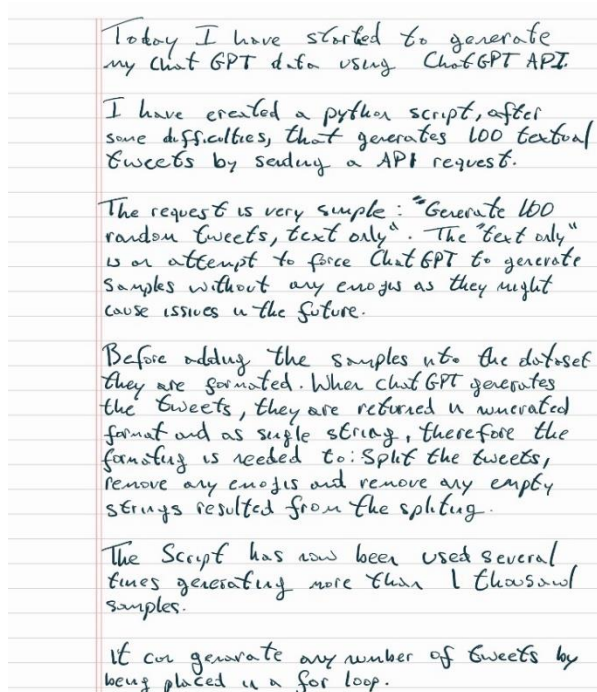 Today I have started to generate
my Chat GPT data using ChatGPT API.
I have created a python script, after
some difficulties, that generates 100 textual
tweets by sending a API request.
The request is very simple: "Generate 100
random tweets, text only". The "text only"
is an attempt to force ChatGPT to generate
samples without any emojis as they might
cause issues in the future.
Before adding the samples into the dataset
they are formated. When chatGPT generates
the tweets, they are returned in numerated
format and as single string, therefore the
formating is needed to: Split the tweets,
remove any emojis and remove any empty
strings resulted from the spliting.
The Script has now been used several
times generating more than 1 thousand
samples.
It can generate any number of tweets by
being placed in a for loop.